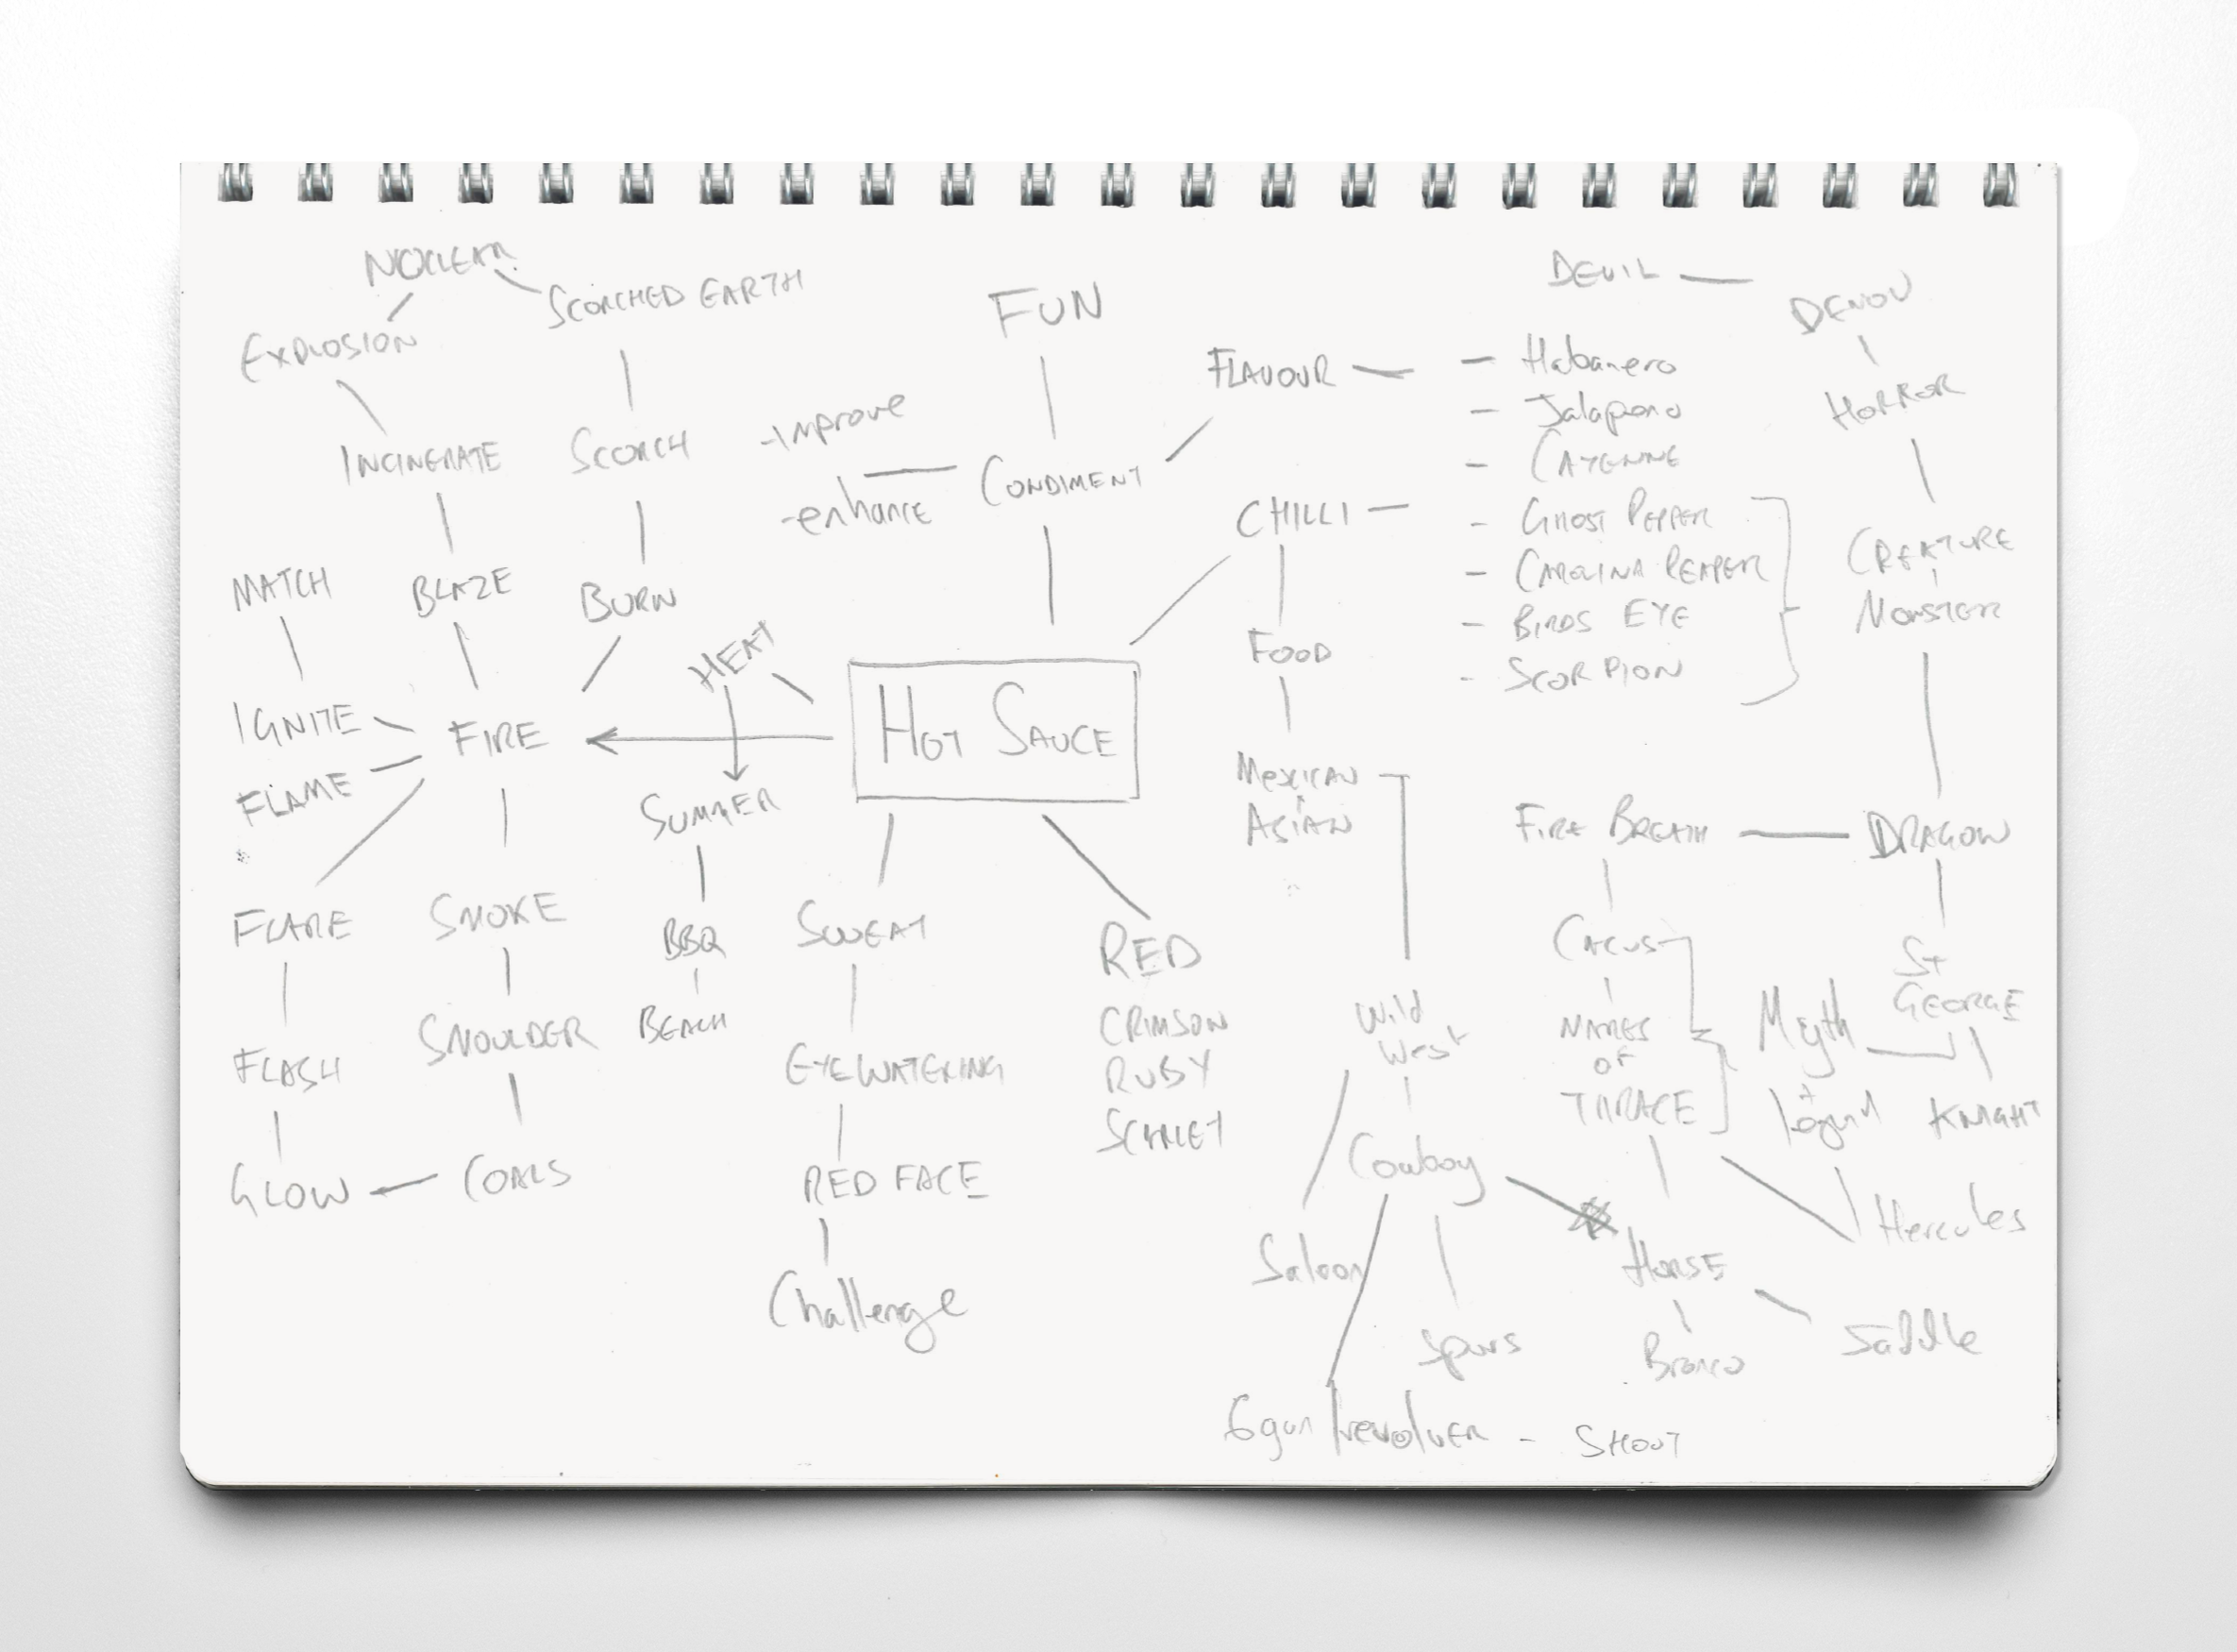 NUCLEAR
SCORCHED EARTH
EXPLOSION
INCINERATE
SCORCH
MATCH
BLAZE
BURN
IGNITE
FIRE
FLAME
FLARE
SMOKE
FLASH
SMOULDER
GLOW
COALS
HEAT
SUMMER
BBQ
BEACH
FUN
-improve
-enhance
CONDIMENT
HOT SAUCE
SWEAT
EYE WATERING
RED FACE
Challenge
RED
CRIMSON
RUBY
SCARLET
FLAVOUR
CHILLI
FOOD
MEXICAN
ASIAN
- Habanero
- Jalapeno
- CAYENNE
- GHOST PEPPER
- CAROLINA REAPER
- BIRDS EYE
- SCORPION
DEVIL
DEMON
HORROR
CREATURE
MONSTER
FIRE BREATH
DRAGON
CACUS
NAMES
OF
THRACE
Myth
+
legend
St
GEORGE
KNIGHT
Hercules
Wild
West
Cowboy
Saloon
Spurs
HORSE
Bronco
Saddle
6gun/revolver - SHOOT